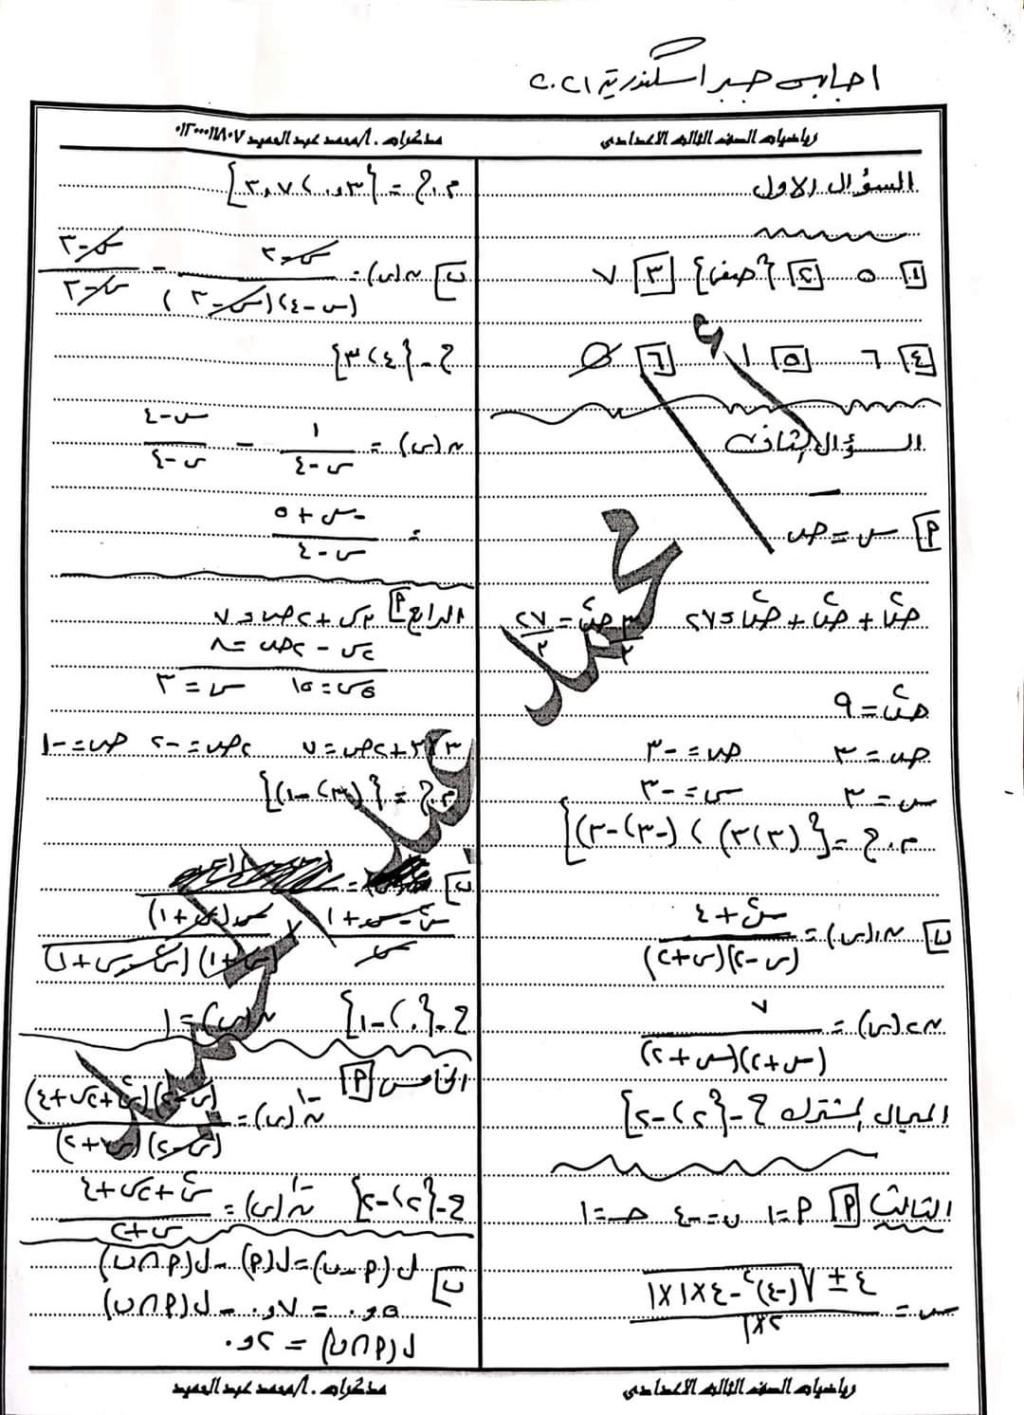 اجابة جبر اسكندرية ٢٠٢١
رياضيات الصف الثالث الاعدادى
مذكرات . أ/محمد عبد الحميد ٠١٢٠٠٠١١٨٠٧
السؤال الاول
[١] ٥ [٢] {صفر} [٣] ٧
[٤] ٦ [٥] ١ [٦] ∅
السؤال الثانى
[P] س = ص
ص٢ + ص٢ + ص٢ = ٢٧
ص٢ = ٩
ص = ٣ ص = -٣
س = ٣ س = -٣
م.ح = {(٣،٣) ، (-٣،-٣)}
[ب] ن١(س) = (س٢ + ٤) / (س-٢)(س+٢)
ن٢(س) = ٧ / (س+٢)(س+٢)
المجال المشترك ح - {٢ ، -٢}
الثالث [P] P = ١ ب = -٤ حـ = ١
س = (٤ ± √((-٤)٢ - ٤×١×١)) / ٢×١
م.ح = {٣,٧ ، ٠,٣}
[ب] ن(س) = (س-٣) / (س-٤)(س-٣) - (س-٣) / (س-٣)
ح - {٤ ، ٣}
ن(س) = ١ / (س-٤) - (س-٤) / (س-٤)
= (-س + ٥) / (س-٤)
الرابع [P] ٣س + ٢ص = ٧
٢س - ٢ص = ٨
٥س = ١٥ س = ٣
٣×٣ + ٢ص = ٧ ٢ص = -٢ ص = -١
م.ح = {(٣ ، -١)}
[ب]
(س٢ - س + ١) / س × س(س + ١) / (س+١)(س٢ - س + ١)
ح - {٠ ، -١} ن(س) = ١
الخامس [P]
ن-١(س) = (س-٢)(س٢+٢س+٤) / (س-٢)(س+٢)
ح - {٢ ، -٢} ن-١(س) = (س٢ + ٢س + ٤) / (س+٢)
[ب] ل(P - ب) = ل(P) - ل(P∩ب)
٠,٥ = ٠,٧ - ل(P∩ب)
ل(P∩ب) = ٠,٢
رياضيات الصف الثالث الاعدادى
مذكرات . أ/محمد عبد الحميد